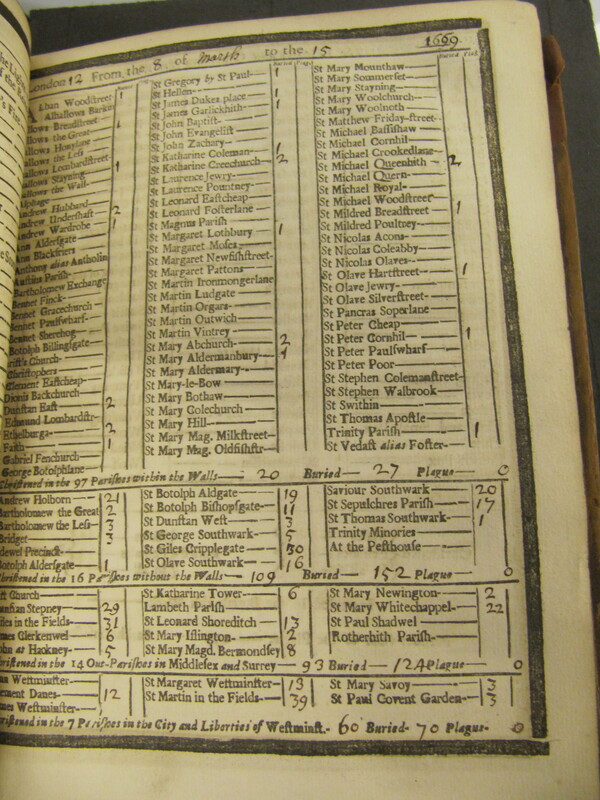 London 12 From the 8 of March to the 15 1669
lban Woodstreet 1
Alhallows Barkin
llows Breadstreet 1
llows the Great
llows Honylane
llows the Less
llows Lombardstreet 1
llows Stayning
llows the Wall
lphage
ndrew Hubbard
ndrew Undershaft 2
ndrew Wardrobe 1
Ann Aldersgate
Ann Blackfriers
Anthony alias Antholin
Austins Parish
Bartholomew Exchange
Bennet Finck
Bennet Gracechurch
Bennet Paulswharf
Bennet Sherehog
Botolph Billingsgate
rist's Church
Christophers
Clement Eastcheap
Dionis Backchurch
Dunstan East 2
Edmund Lombardstr
Ethelburga 2
Faith 1
Gabriel Fenchurch
George Botolphlane
St Gregory by St Paul 1
St Hellen
St James Dukes place 1
St James Garlickhith
St John Baptist
St John Evangelist
St John Zachary
St Katharine Coleman 1
St Katharine Creechurch 2
St Laurence Jewry
St Laurence Pountney
St Leonard Eastcheap
St Leonard Fosterlane
St Magnus Parish
St Margaret Lothbury 1
St Margaret Moses
St Margaret Newfishstreet
St Margaret Pattons
St Martin Ironmongerlane
St Martin Ludgate
St Martin Orgars
St Martin Outwich
St Martin Vintrey
St Mary Abchurch 2
St Mary Aldermanbury 1
St Mary Aldermary
St Mary-le-Bow
St Mary Bothaw
St Mary Colechurch
St Mary Hill
St Mary Mag. Milkstreet
St Mary Mag. Oldfishstr
St Mary Mounthaw
St Mary Sommerset
St Mary Stayning
St Mary Woolchurch
St Mary Woolnoth
St Matthew Friday-street
St Michael Bassishaw
St Michael Cornhil
St Michael Crookedlane
St Michael Queenhith 2
St Michael Quern
St Michael Royal
St Michael Woodstreet
St Mildred Breadstreet 1
St Mildred Poultrey
St Nicolas Acons
St Nicolas Coleabby
St Nicolas Olaves
St Olave Hartstreet 1
St Olave Jewry
St Olave Silverstreet
St Pancras Soperlane
St Peter Cheap
St Peter Cornhil 1
St Peter Paulswharf
St Peter Poor
St Stephen Colemanstreet
St Stephen Walbrook
St Swithin
St Thomas Apostle
Trinity Parish 1
St Vedast alias Foster
Christened in the 97 Parishes within the Walls 20 Buried 27 Plague 0
Andrew Holborn 21
Bartholomew the Great 2
Bartholomew the Less 3
Bridget 3
dewel Precinct
otolph Aldersgate 1
St Botolph Aldgate 19
St Botolph Bishopsgate 11
St Dunstan West 3
St George Southwark 5
St Giles Cripplegate 30
St Olave Southwark 16
Saviour Southwark 20
St Sepulchres Parish 17
St Thomas Southwark 1
Trinity Minories
At the Pesthouse
hristened in the 16 Parishes without the Walls 109 Buried 152 Plague 0
st Church
unstan Stepney 29
iles in the Fields 31
mes Clerkenwel 6
ohn at Hackney 5
St Katharine Tower 6
Lambeth Parish
St Leonard Shoreditch 13
St Mary Islington 2
St Mary Magd. Bermondsey 8
St Mary Newington 2
St Mary Whitechappel 22
St Paul Shadwel
Rotherhith Parish
hristened in the 14 Out-Parishes in Middlesex and Surrey 93 Buried 124 Plague 0
Westminster
lement Danes 12
mes Westminster
St Margaret Westminster 13
St Martin in the Fields 39
St Mary Savoy 3
St Paul Covent Garden 3
ristened in the 7 Parishes in the City and Liberties of Westminst. 60 Buried 70 Plague 0